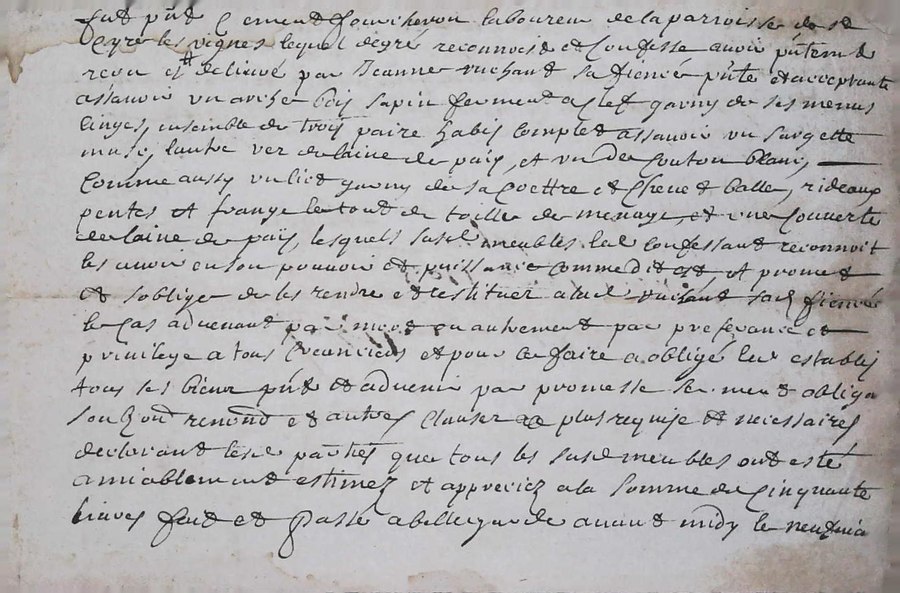 fut pñt Clement Jouvheron laboureur de la parroisse de st
Cyre les vignes lequel degré reconnoist et Confesse avoir pñtemt
receu et delivré par Jeanne vuchant sa fiencée pñte et acceptante
assavoir un arche bois sapin fermant a Clef garny de ses menus
linges, ensemble de trois paire habis complet assavoir un sargette
muse, lautre ver de laine de païs, et un de Couton blanc,
Comme aussy un lict garny de sa Coettre et Chevet balle, rideaux
pentes et frange le tout de toille de menage, et une Couverte
de laine de païs, lesquels susd meubles led confessant reconnoit
les avoir en son pouvoir et puissance comme dit est et promet
et soblige de les rendre et restituer a lad vuchant sad fiencée
le Cas advenant par mort ou autrement par preferance et
privilege a tous Creanciers et pour ce faire a obligé led establis
tous ses biens pñt et advenir par promesse serment obliga
soubzon renond et autres Clauses plus requise et necessaires
declarant lesd parties que tous les susd meubles ont esté
amiablement estimez et appreciez a la somme de Cinquante
livres fait et Passé a bellegarde avant midy le neufvie